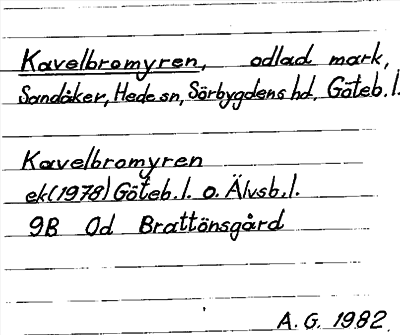 Kavelbromyren, odlad mark,
Sandåker, Hede sn, Sörbygdens hd, Göteb. l.
Kavelbromyren
ek (1978) Göteb. l. o. Älvsb. l.
9B 0d Brattönsgård
A. G. 1982